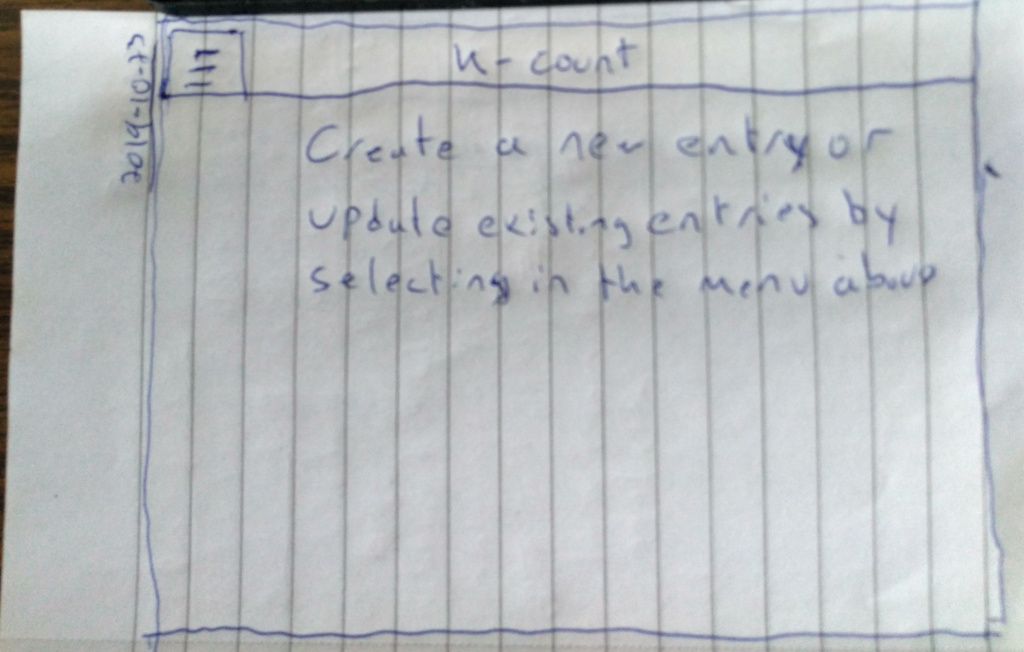 2019-10-23
n-count
Create a new entry or
update existing entries by
selecting in the menu above